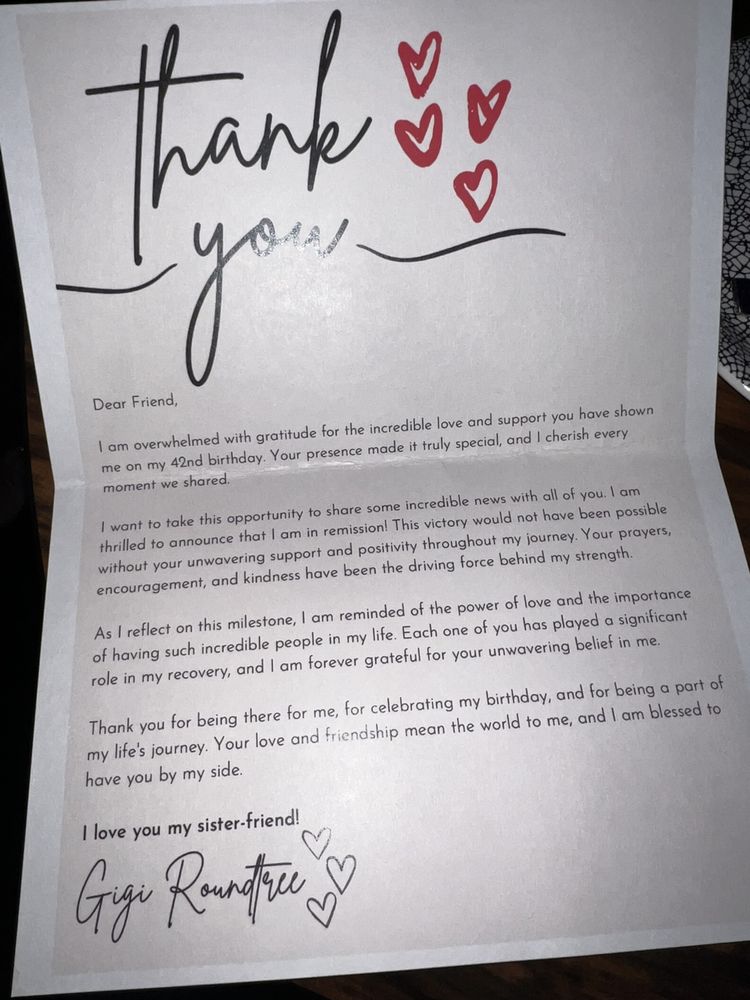 thank
you
Dear Friend,
I am overwhelmed with gratitude for the incredible love and support you have shown
me on my 42nd birthday. Your presence made it truly special, and I cherish every
moment we shared.
I want to take this opportunity to share some incredible news with all of you. I am
thrilled to announce that I am in remission! This victory would not have been possible
without your unwavering support and positivity throughout my journey. Your prayers,
encouragement, and kindness have been the driving force behind my strength.
As I reflect on this milestone, I am reminded of the power of love and the importance
of having such incredible people in my life. Each one of you has played a significant
role in my recovery, and I am forever grateful for your unwavering belief in me.
Thank you for being there for me, for celebrating my birthday, and for being a part of
my life's journey. Your love and friendship mean the world to me, and I am blessed to
have you by my side.
I love you my sister-friend!
Gigi Roundtree